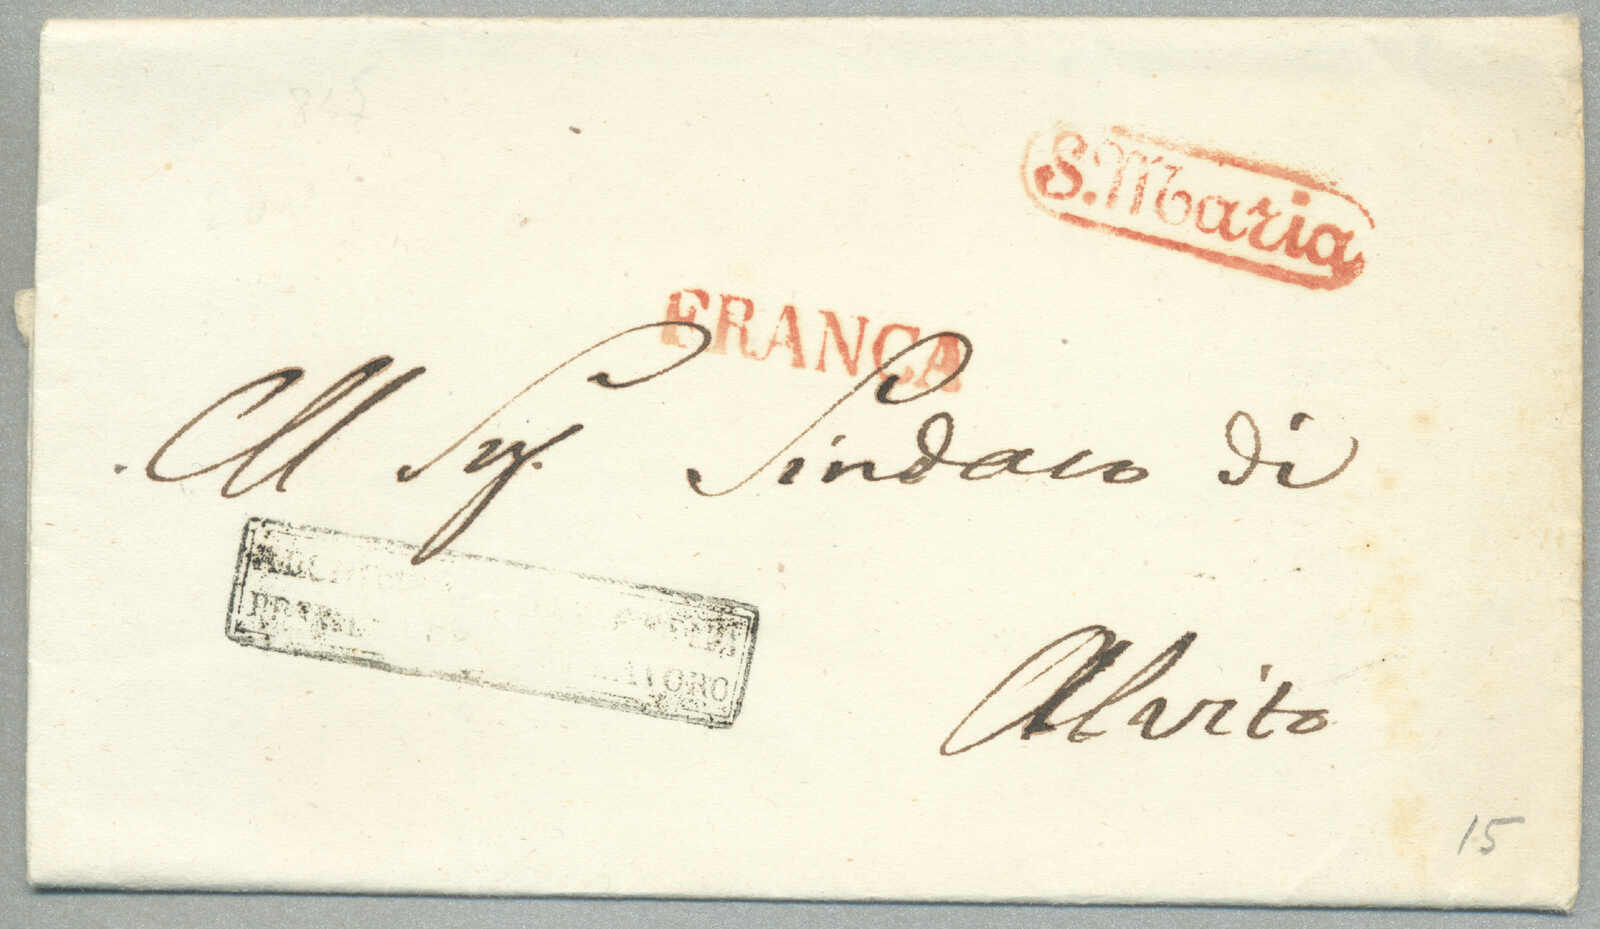 S. Maria
FRANCA
Al Sig. Sindaco di
LAVORO
Alvito
15